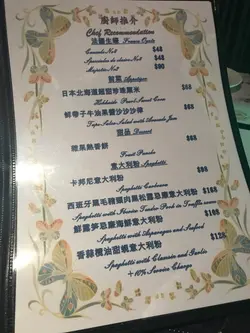 廚師推介
Chef Recommendation
法國生蠔 France Oyster
Gearande No.2 $42
Speciales de claire No.2 $48
Majestic No.2 $90
前菜 Appetizer
日本北海道極甜珍珠粟米 $58
Hokkaido Pearl Sweet Corn
鮮帶子牛油果醬沙沙沙律 $88
Salad with Avocado Jam
甜品 Dessert
鮮果熱香餅
Fruit Pancake
意大利粉 Spaghetti
卡邦尼意大利粉 $98
Spaghetti Carbonara
西班牙黑毛豬頸肉黑松露忌廉意大利粉 $128
Spaghetti with Iberico Pork in Truffle sauce
鮮蘆筍忌廉海鮮意大利粉 $108
Spaghetti with Asparagus and Seafood
香蒜欖油甜蜆意大利粉 $98
Spaghetti with Clamsin and Garlic
+10% Service Charge